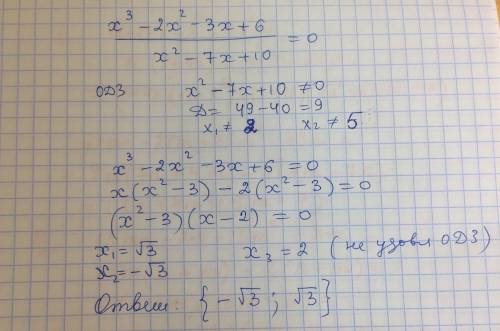 x³ − 2x² − 3x + 6
x² − 7x + 10 = 0
ОДЗ x² − 7x + 10 ≠ 0
D = 49 − 40 = 9
x₁ ≠ 2 x₂ ≠ 5
x³ − 2x² − 3x + 6 = 0
x(x² − 3) − 2(x² − 3) = 0
(x² − 3)(x − 2) = 0
x₁ = √3 x₃ = 2 (не удовл ОДЗ)
x₂ = −√3
Ответ: {−√3 ; √3}